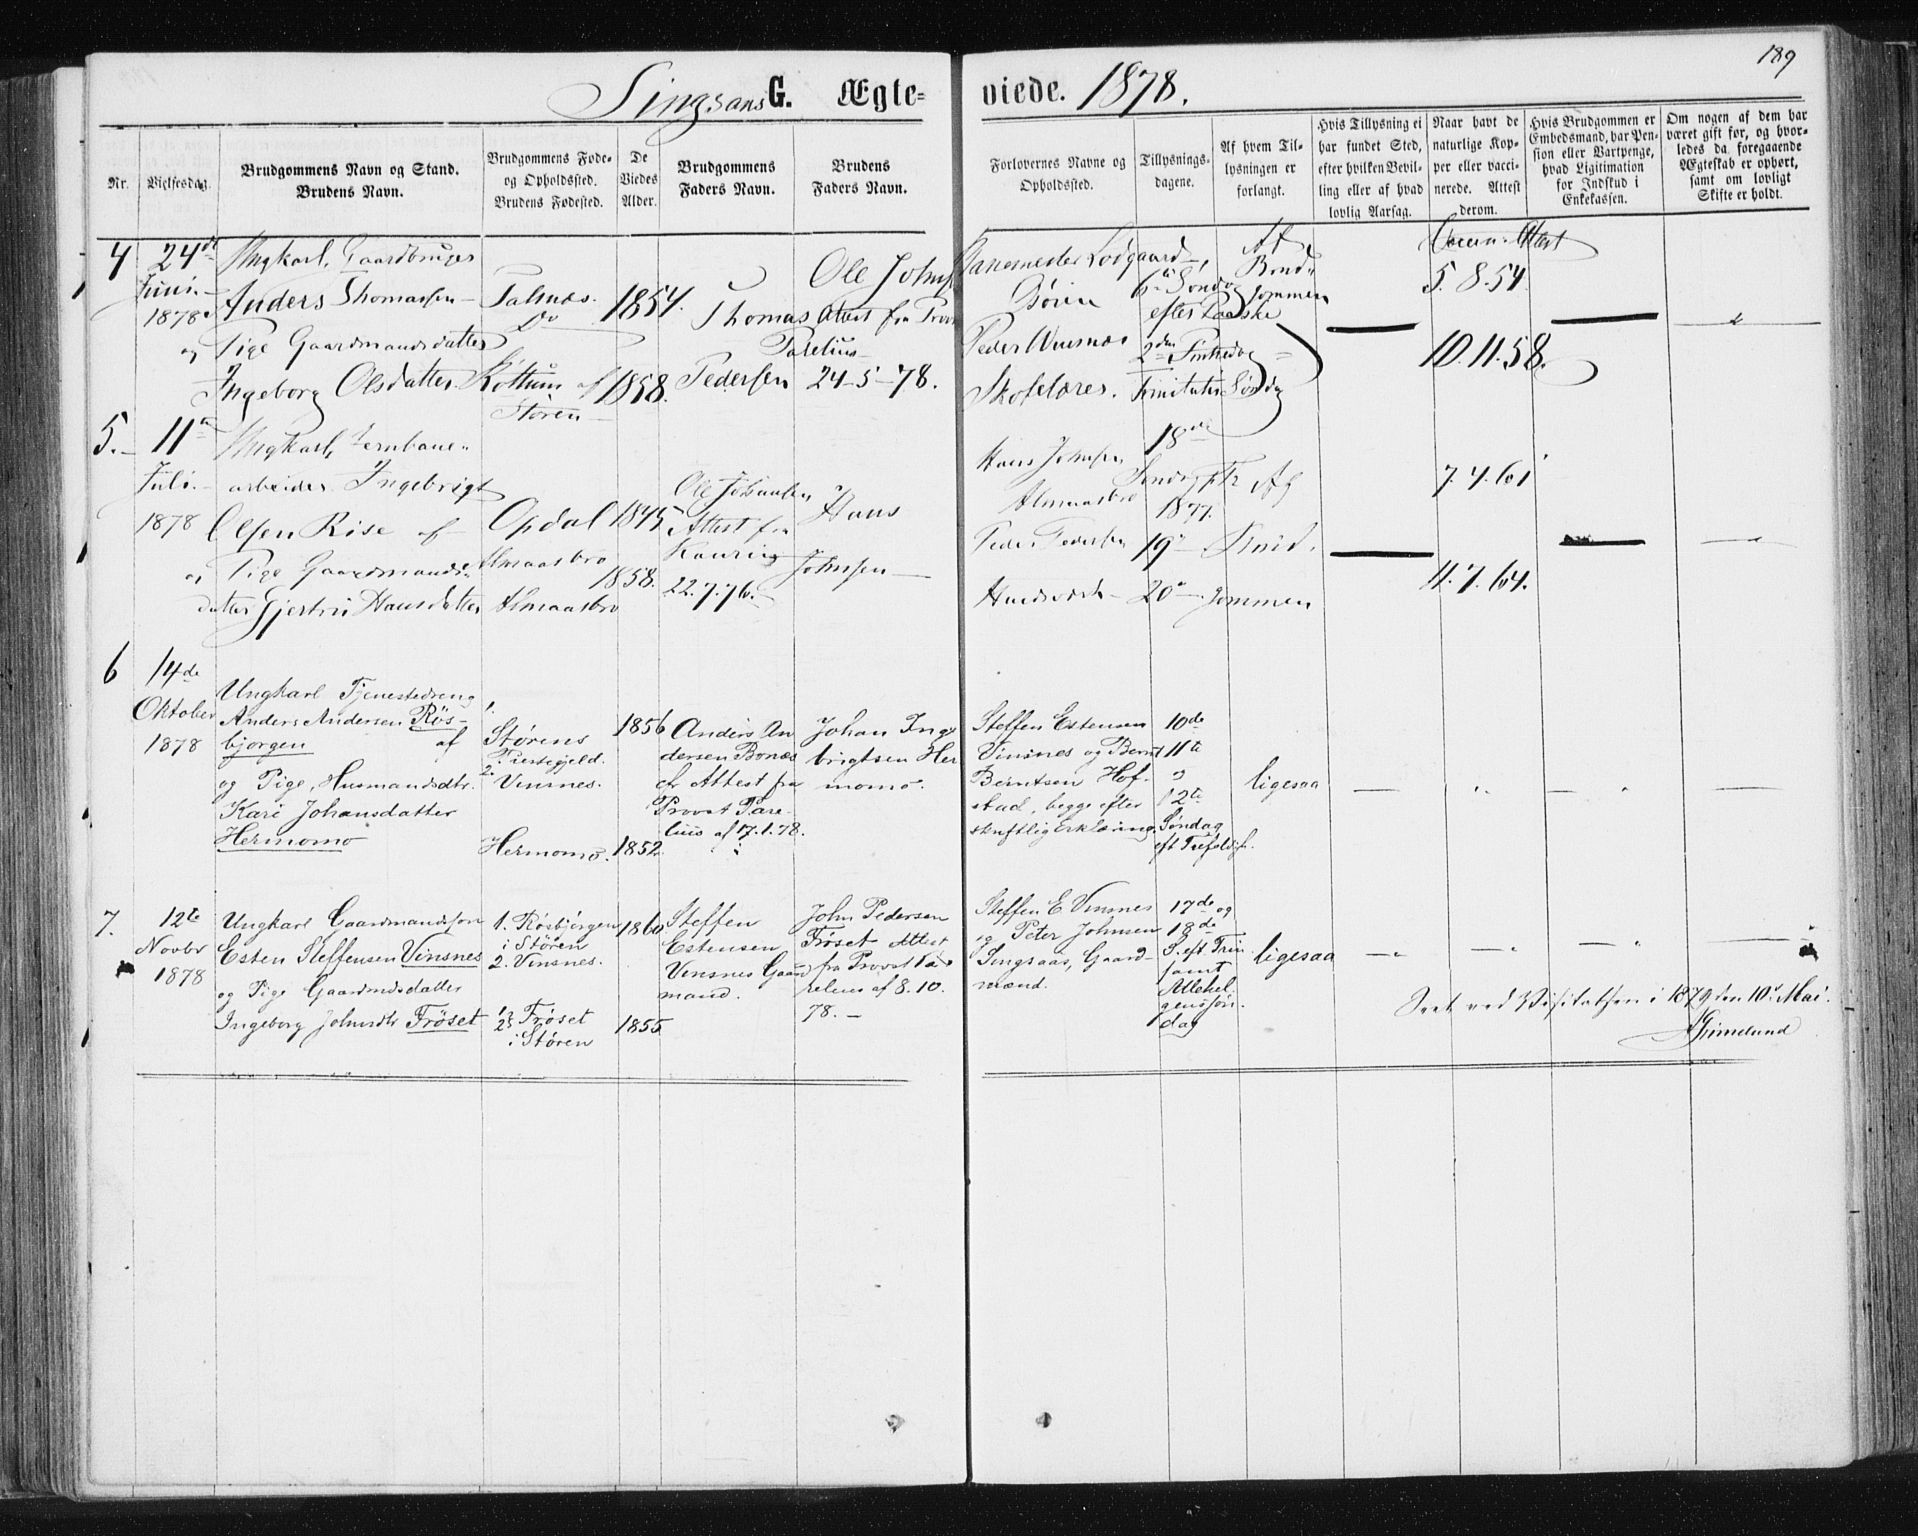 189
Singsaas G. Ægte=
viede. 1878.
Nr.
Vielsesdag.
Brudgommens Navn og Stand.
Brudens Navn.
Brudgommens Føde-
og Opholdssted.
Brudens Fødested.
De
Viedes
Alder.
Brudgommens
Faders Navn.
Brudens
Faders Navn.
Forlovernes Navne og
Opholdssted.
Tillysnings-
dagene.
Af hvem Til-
lysningen er
forlangt.
Hvis Tillysning ei
har fundet Sted,
efter hvilken Bevil-
ling eller af hvad
lovlig Aarsag.
Naar havt de
naturlige Kop-
per eller vacci-
nerede. Attest
derom.
Hvis Brudgommen er
Embedsmand, har Pen-
sion eller Vartpenge,
hvad Ligitimation
for Indskud i
Enkekassen.
Om nogen af dem har
været gift før, og hvor-
ledes da foregaaende
Ægteskab er ophørt,
samt om lovligt
Skifte er holdt.
4
24de
Juni
1878
Ungkarl, Gaardbruger
Anders Thomassen
og Pige Gaardmandsdatter
Ingeborg Olsdatter
Do
Støren
1854.
1858.
Thomas
Pedersen
Ole Johns
Attest fra Provst
Parelius
24-5-78.
Lodgaard
Peder
6te Søndag
efter Paaske
2den Pintsedag
Trinitatis Søndag
Af
Brud
gommen
Attest
5.8.54.
10.11.58.
5.
11te
Juli
1878
Ungkarl, Jernbane
arbeider Ingebrigt
Olsen Rise af
og Pige Gaardmands
datter Gjertru Hansdatter
Opdal
Almaasbro
Almaasbro
1845
1858.
Attest fra
22.7.76.
Hans
Johnsen
Hans Johnsen
Almaasbro
Peder Pedersen
18de
Søndag
1877.
19
20
Af
Brud
gommen
7.4.61
11.7.64.
6
14de
Oktober
1878
Ungkarl Tjenestedreng
Anders Andersen Røs-
bjørgen af
og Pige, Husmandsdtr.
Kari Johansdatter
Hermomo
1.
Størens
Præstegjeld.
2.
Vinsnes.
Hermomo.
1856
1852
Anders An
dersen Bones
Attest fra
Provst Pare-
lius af 17.1.78.
Johan Inge
brigtsen Her
momo.
Steffen Estensen
Vinsnes og Bernt
Berntsen Hof-
stad, begge efter
skriftlig Erklæring.
10de
11te
og
12te
Søndag
eft Trefoldigh.
ligesaa
7.
12te
Novbr
1878
Ungkarl Gaardmandssøn
Esten Steffensen Vinsnes
og Pige Gaardmdsdatter
Ingeborg Johnsdtr Frøset
1. Røsbjørgen
i Støren
2. Vinsnes.
Frøset
i Støren
1860
1855
Steffen
Estensen
Vinsnes Gaard
mand.
John Pedersen
Frøset Attest
fra Provst Pa-
relius af 8.10.
78.
Steffen E. Vinsnes
og Peter Johnsen
Singsaas, Gaard-
mænd.
17de og
18de
S. eft Trin
samt
Allehel-
genssøn-
dag
ligesaa
Seet ved Visitatsen i 1879 den 10de Mai.
AGrimelund